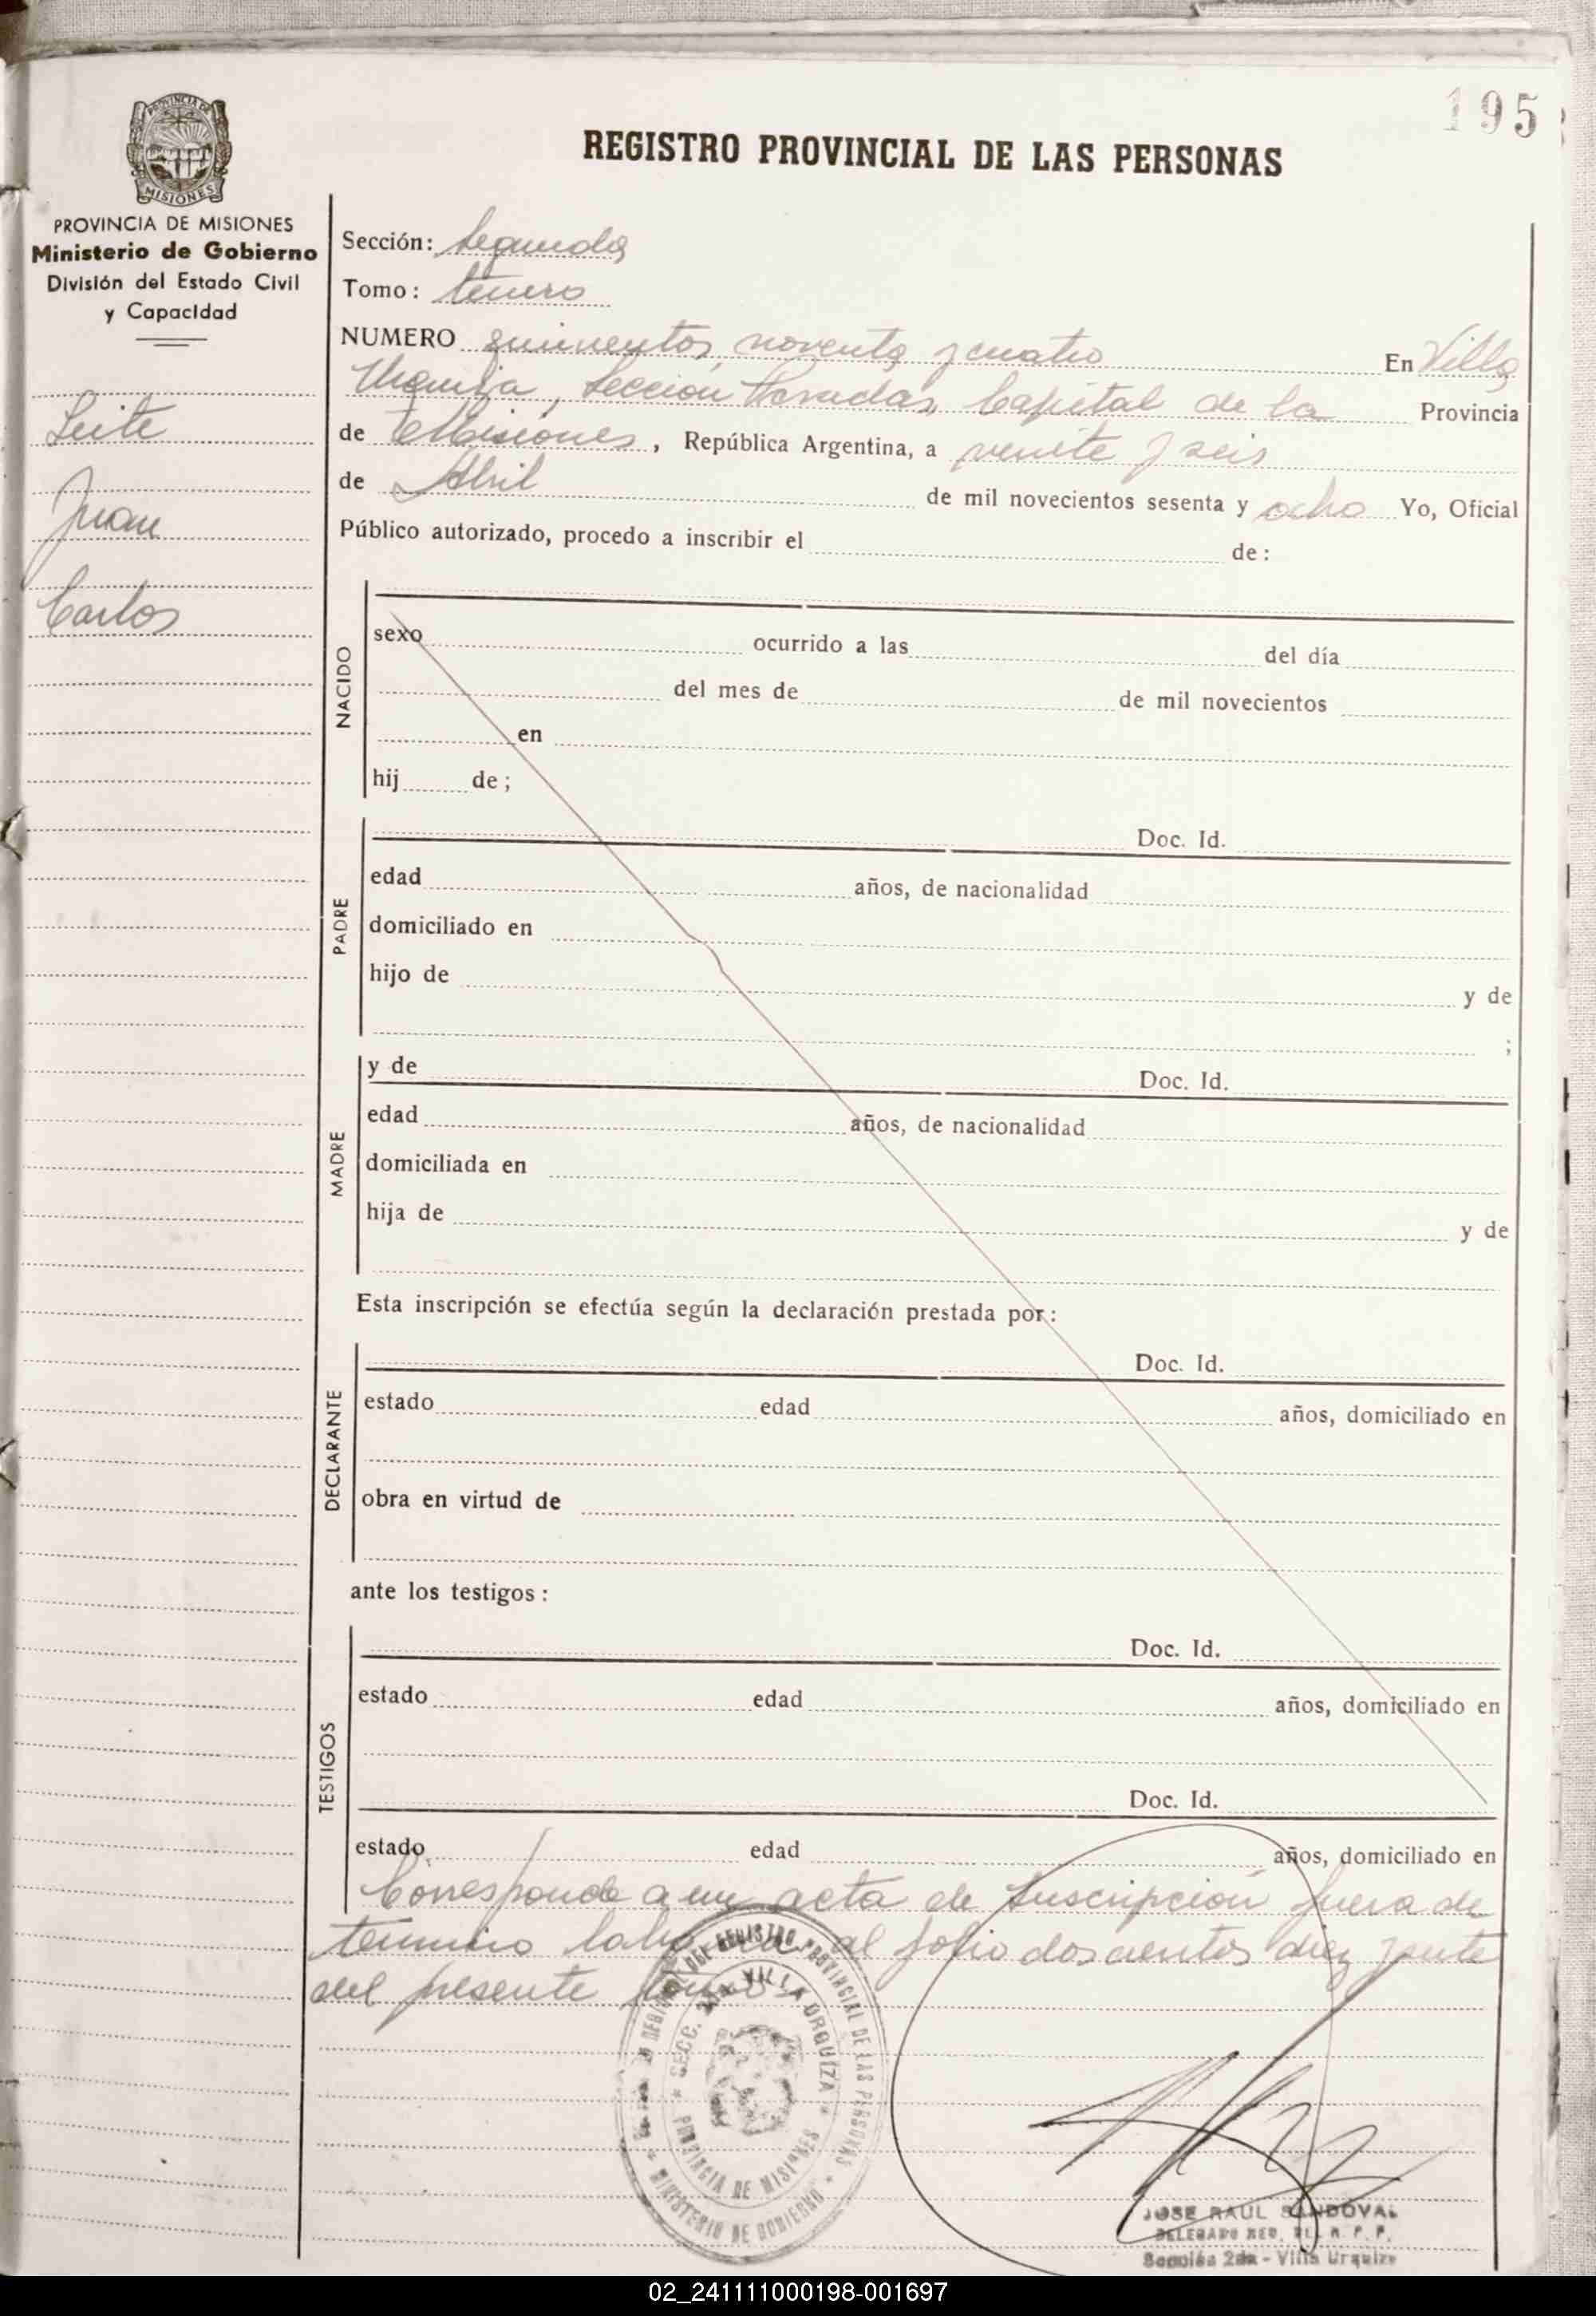 195
PROVINCIA DE
MISIONES
REGISTRO PROVINCIAL DE LAS PERSONAS
PROVINCIA DE MISIONES
Ministerio de Gobierno
División del Estado Civil
y Capacidad
Leite
Juan
Carlos
Sección: Segunda
Tomo: tercero
NUMERO quinientos noventa y cuatro En Villa
Urquiza, Sección Posadas, Capital de la Provincia
de Misiones, República Argentina, a veinte y seis
de Abril de mil novecientos sesenta y ocho Yo, Oficial
Público autorizado, procedo a inscribir el de:
NACIDO
sexo ocurrido a las del día
del mes de de mil novecientos
en
hij de;
PADRE
Doc. Id.
edad años, de nacionalidad
domiciliado en
hijo de y de
;
MADRE
y de Doc. Id.
edad años, de nacionalidad
domiciliada en
hija de y de
Esta inscripción se efectúa según la declaración prestada por:
DECLARANTE
Doc. Id.
estado edad años, domiciliado en
obra en virtud de
ante los testigos:
TESTIGOS
Doc. Id.
estado edad años, domiciliado en
Doc. Id.
estado edad años, domiciliado en
Corresponde a un acta de Inscripción fuera de
termino al folio doscientos diez y
del presente tomo
REGISTRO PROVINCIAL DE LAS PERSONAS
SECC. 2da VILLA URQUIZA
PROVINCIA DE MISIONES
MINISTERIO DE GOBIERNO
JOSE RAUL SANDOVAL
DELEGADO R. P. P.
Sección 2da - Villa Urquiza
02_241111000198-001697